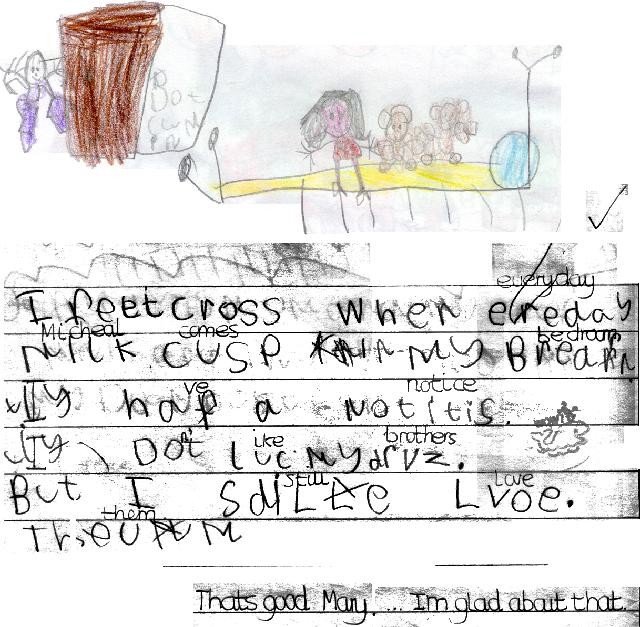 Bot
everyday
I feel cross when ereday
Micheal comes bedroom
MicK cusp in my Bream
ve notice
Iy hap a notitis.
n't ike brothers
Iy Dot luc my drvz.
still Love
But I Lvoe.
them
Thats good Mary. ... I'm glad about that.